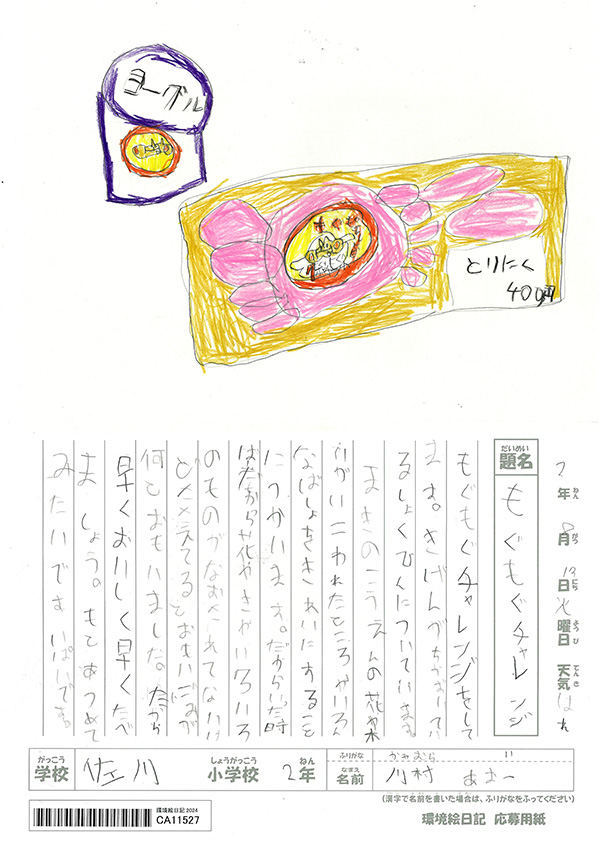 ヨーグル
とりにく
400円
2年 8月 13日 火曜日 天気 はれ
だいめい
題名 もぐもぐチャレンジ
もぐもぐチャレンジをして
ます。きげんがちかずいてい
るしょくひんについています。
まきのこうえんの花や木
がいこわれたところがいろん
なばしょをきれいにすること
につかいます。だからいった時
はだから花や木がいろいろ
のものがなおされてないけ
どえてるとおもいごみが
何とおもいました。だから
早くおいしく早くたべ
ましょう。もとあつめて
みたいです。いぱいです。
がっこう しょうがっこう ねん
学校 佐川 小学校 2年
ふりがな かわむら
なまえ
名前 川村
(漢字で名前を書いた場合は、ふりがなをふってください)
環境絵日記2024
CA11527
環境絵日記 応募用紙